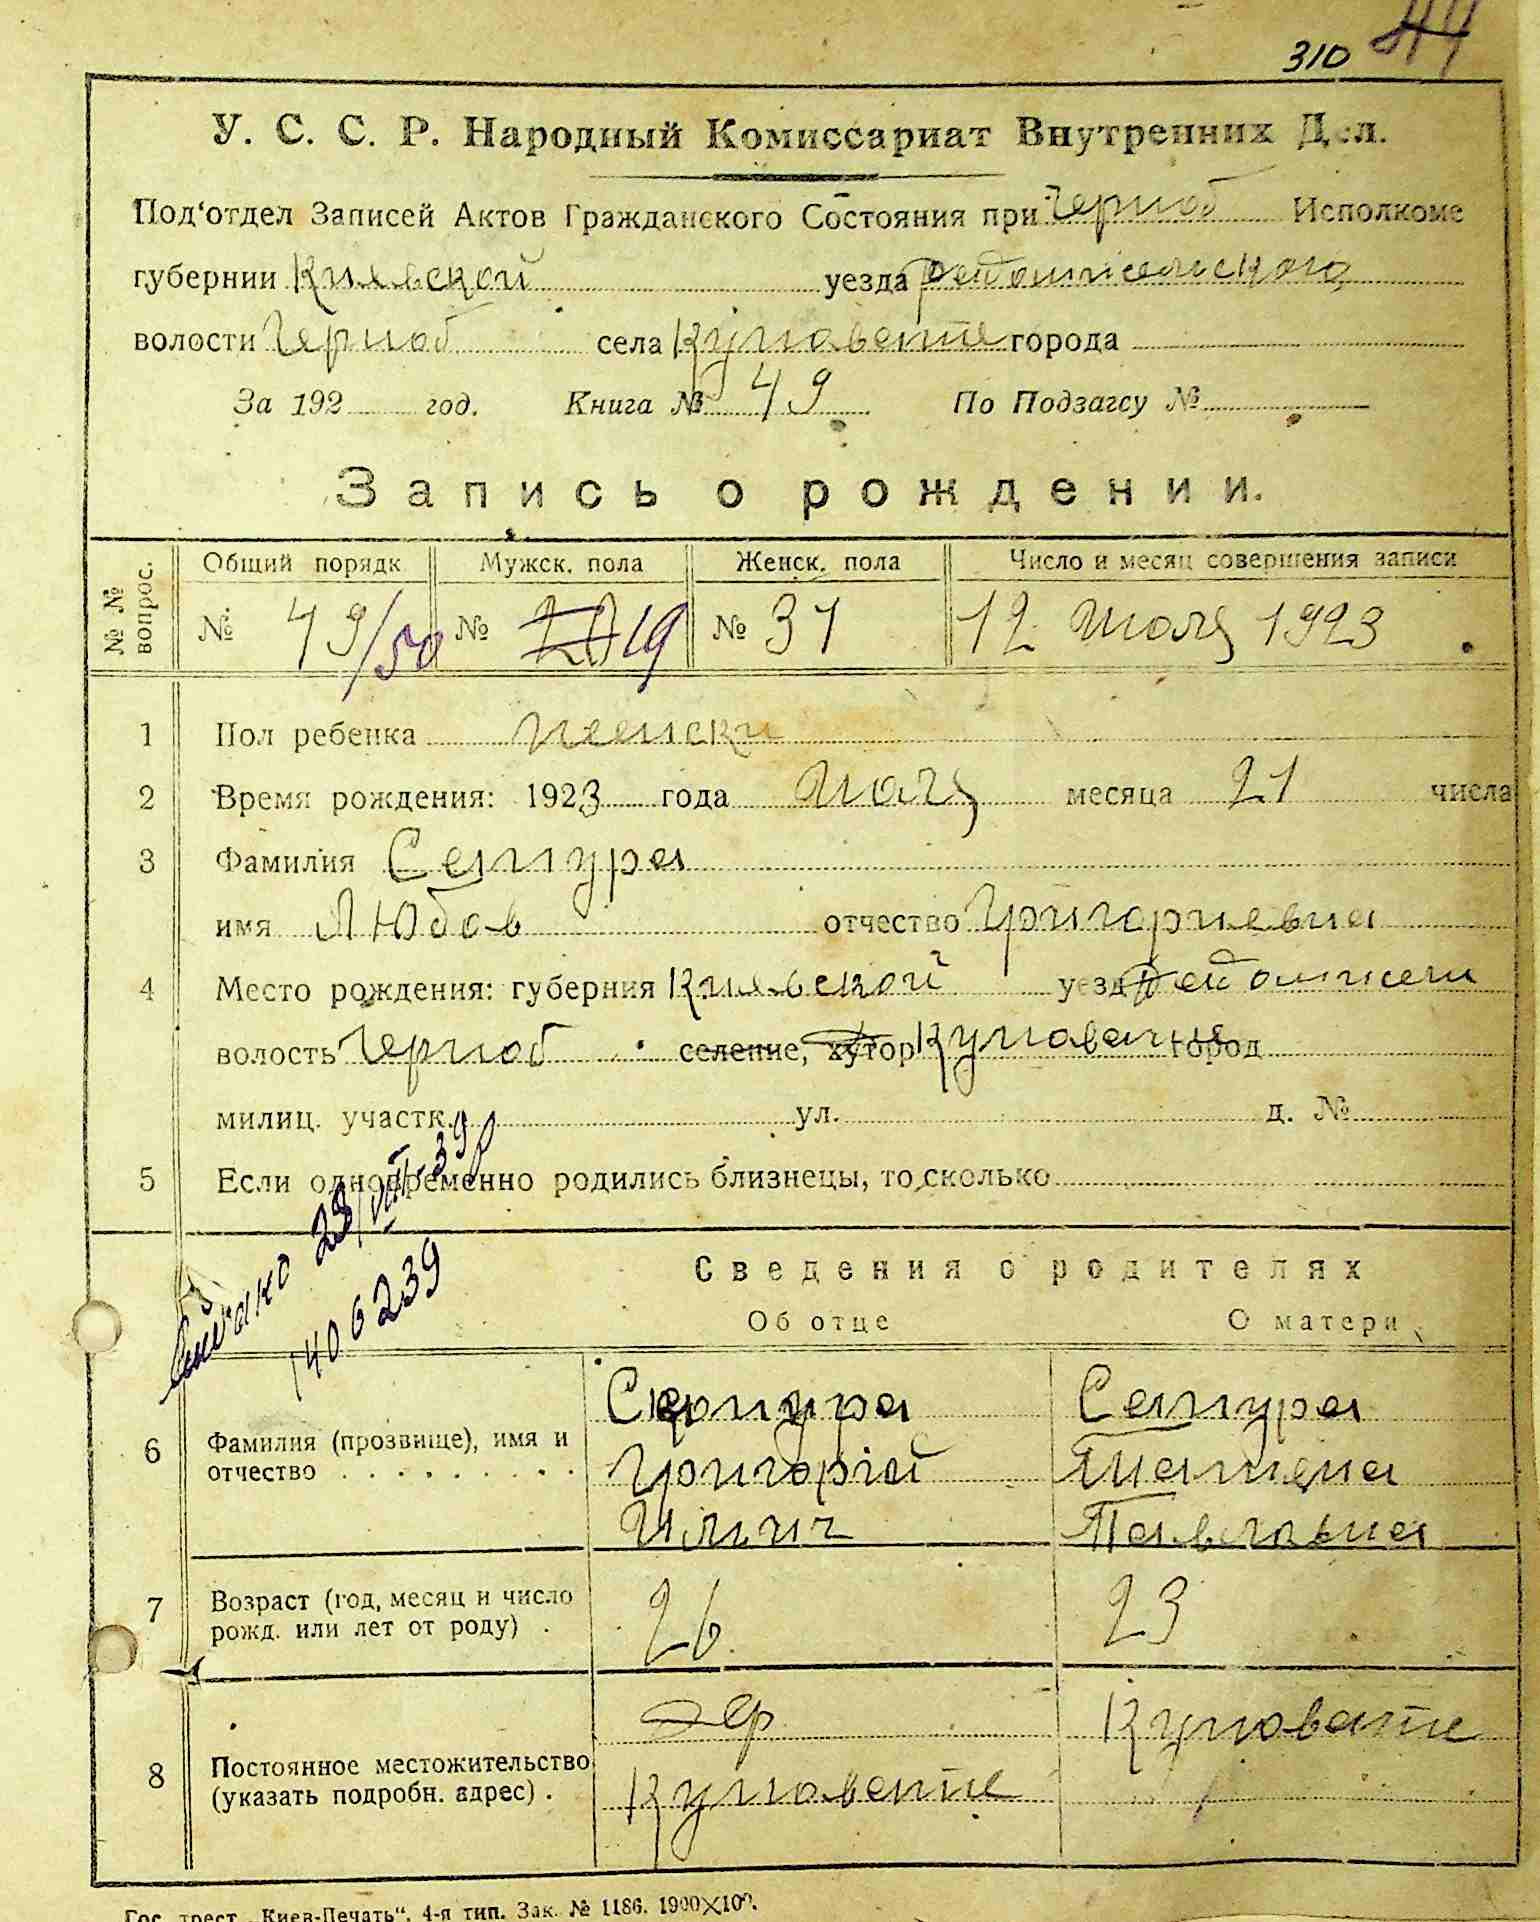 310 44
У. С. С. Р. Народный Комиссариат Внутренних Дел.
Под‘отдел Записей Актов Гражданского Состояния при Черноб Исполкоме
губернии Киевской уезда
волости Черноб села Куповате города
За 192 год. Книга № 49 По Подзагсу №
Запись о рождении.
№ № вопрос. Общий порядк Мужск. пола Женск. пола Число и месяц совершения записи
№ 49/50 № 19 № 31 12 Июля 1923
1 Пол ребенка женски
2 Время рождения: 1923 года Июля месяца 21 числа
3 Фамилия Сетура
имя Любов отчество Григориевна
4 Место рождения: губерния Киевской уезд
волость Черноб селение, хутор город
милиц. участк. ул. д. №
5 Если одновременно родились близнецы, то сколько
Видано 23/VIII-39р
140б239
Сведения о родителях
Об отце О матери
6 Фамилия (прозвище), имя и отчество Сетура
Григорій Татяна
Ильич Павловна
7 Возраст (год, месяц и число рожд. или лет от роду) . 26 23
8 Постоянное местожительство (указать подробн. адрес) . Куповате
Куповате
Гос. трест „Киев-Печать“. 4-я тип. Зак. № 1186. 1900×100.